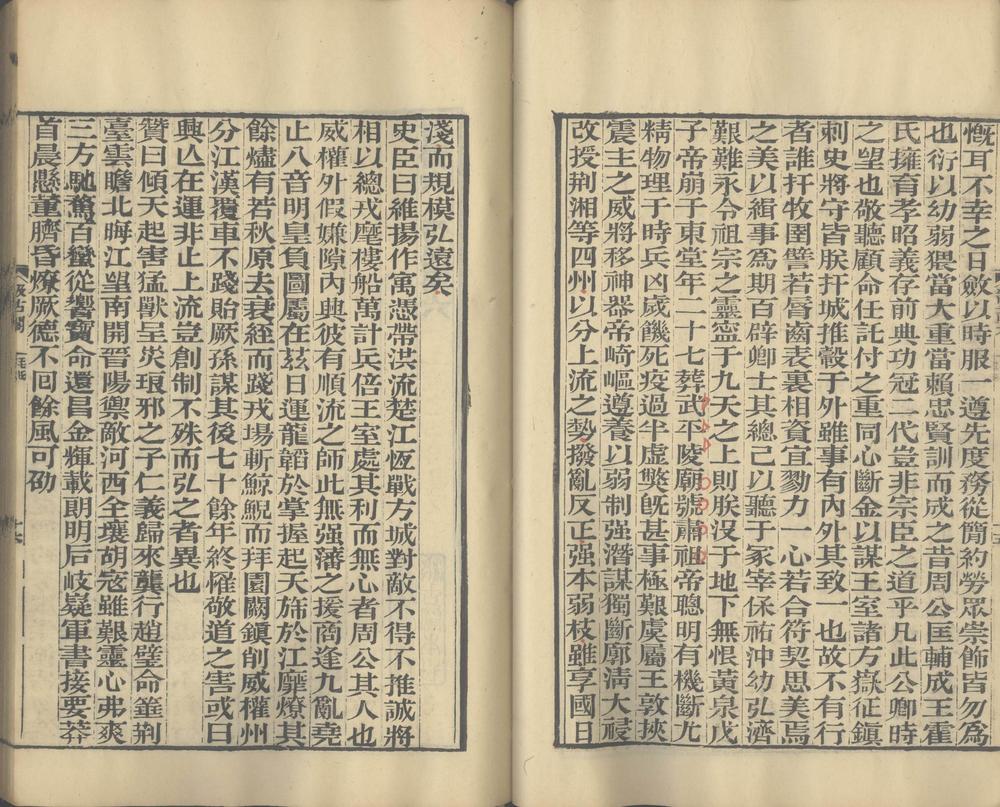 慨耳不幸之日斂以時服一遵先度務從簡約勞眾崇飾皆勿爲
也衍以幼弱猥當大重當賴忠賢訓而成之昔周公匡輔成王霍
氏擁育孝昭義存前典功冠二代豈非宗臣之道乎凡此公卿時
之望也敬聽顧命任託付之重同心斷金以謀王室諸方嶽征鎮
刺史將守皆朕扞城推轂于外雖事有內外其致一也故不有行
者誰扞牧圉譬若脣齒表裏相資宜勠力一心若合符契思美焉
之美以緝事爲期百辟卿士其總己以聽于冢宰保祐沖幼弘濟
艱難永令祖宗之靈寧于九天之上則朕沒于地下無恨黃泉戊
子帝崩于東堂年二十七葬武平陵廟號肅祖帝聰明有機斷尤
精物理于時兵凶歲饑死疫過半虛獘旣甚事極艱虞屬王敦挾
震主之威將移神器帝崎嶇遵養以弱制强潛謀獨斷廓淸大祲
改授荆湘等四州以分上流之勢撥亂反正强本弱枝雖享國日
淺而規模弘遠矣
史臣曰維揚作寓憑帶洪流楚江恆戰方城對敵不得不推誠將
相以總戎麾樓船萬計兵倍王室處其利而無心者周公其人也
威權外假嫌隙內興彼有順流之師此無强藩之援商逢九亂堯
止八音明皇負圖屬在茲日運龍韜於掌握起天旆於江靡燎其
餘燼有若秋原去衰絰而踐戎場斬鯨鯢而拜園闕鎮削威權州
分江漢覆車不踐貽厥孫謀其後七十餘年終罹敬道之害或曰
興亾在運非止上流豈創制不殊而弘之者異也
贊曰傾天起害猛獸呈災琅邪之子仁義歸來龔行趙璧命箠荆
臺雲瞻北晦江望南開晉陽禦敵河西全壤胡寇雖艱靈心弗爽
三方馳騖百蠻從響寶命還昌金輝載朗明后岐嶷軍書接要莽
首晨懸董臍昏燎厥德不回餘風可劭